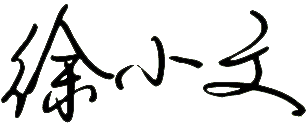 徐小文